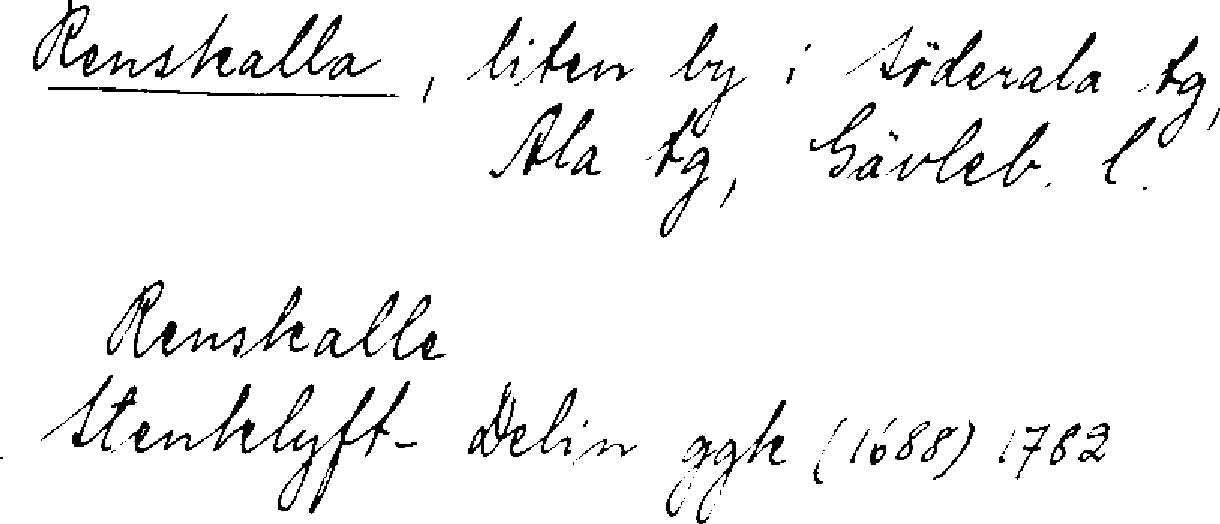 Renskalla, liten by i Söderala tg,
Ala tg, Gävleb. l.
Renskalle
Stenklyft- Delin ggk (1688) 1782